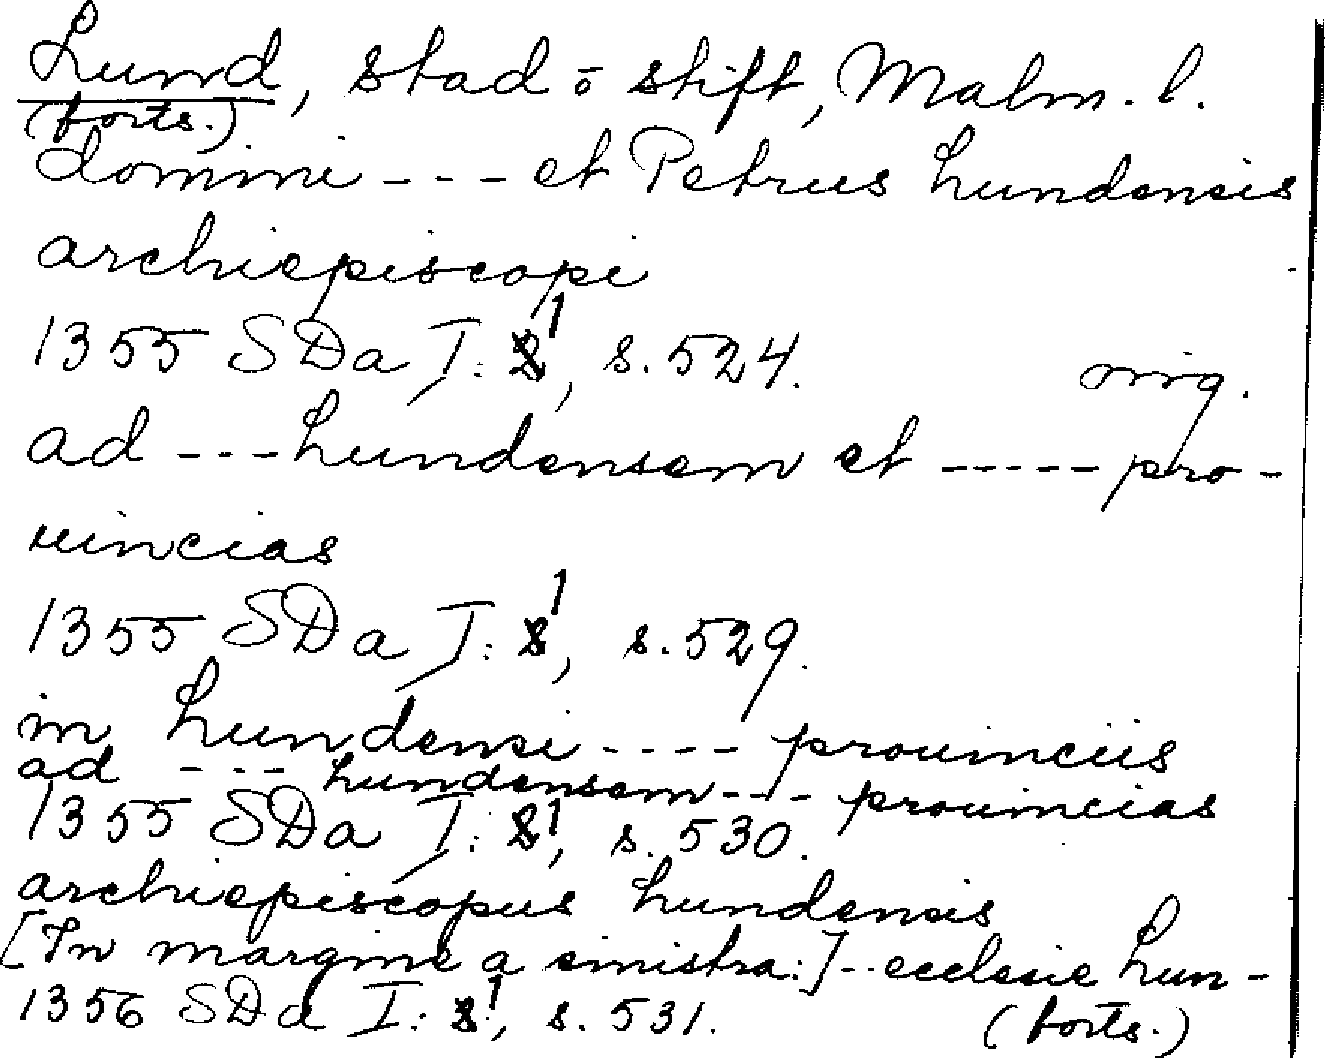 Lund, stad o stift, Malm. l.
(forts.)
domini --- et Petrus Lundensis
archiepiscopi
1355 SDa I: 1, s. 524. orig.
ad --- Lundensem et ----- pro-
uincias
1355 SDa I: 1, s. 529.
in Lundensi ---- prouinciis
ad --- Lundensem --- prouincias
1355 SDa I: 1, s. 530.
archiepiscopus Lundensis
[In margine a sinistra:] -- ecclesie Lun-
1356 SDa I: 1, s. 531. (forts.)